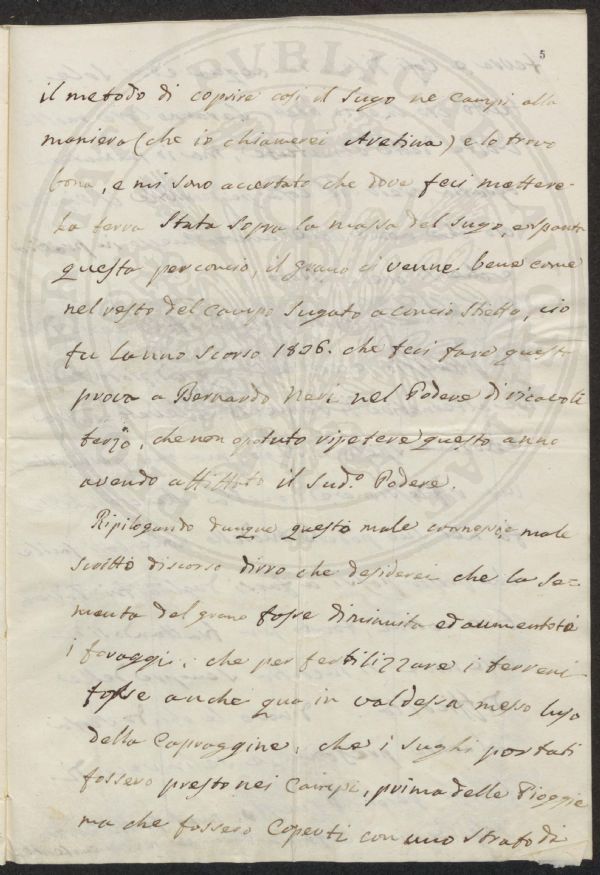 5
il metodo di coprire così il Sugo ne campi alla
maniera (che io chiamerei Aretina) e lo trovo
bona, e mi sono accertato che dove feci mettere
la terra Stata sopra la massa del sugo, e spanta
questa per concio, il grano ci venne bene come
nel resto del campo Sugato a concio Stietto, ciò
fu lanno scorso 1836. che feci fare questa
prova a Bernardo Nari nel Podere di
terzo, che non o potuto ripetere questo anno
avendo affittato il sud.o Podere.
Ripilogando dunque questo male e male
scritto discorso dirro che desiderei che la Se=
menta del grano fosse diminuita ed aumentati
i foraggi; che per fertilizzare i terreni
fosse anche qua in valdelsa messo luso
della Capraggine, che i sughi portati
fossero presto nei Campi, prima delle Pioggie
ma che fossero Coperti con uno strato di